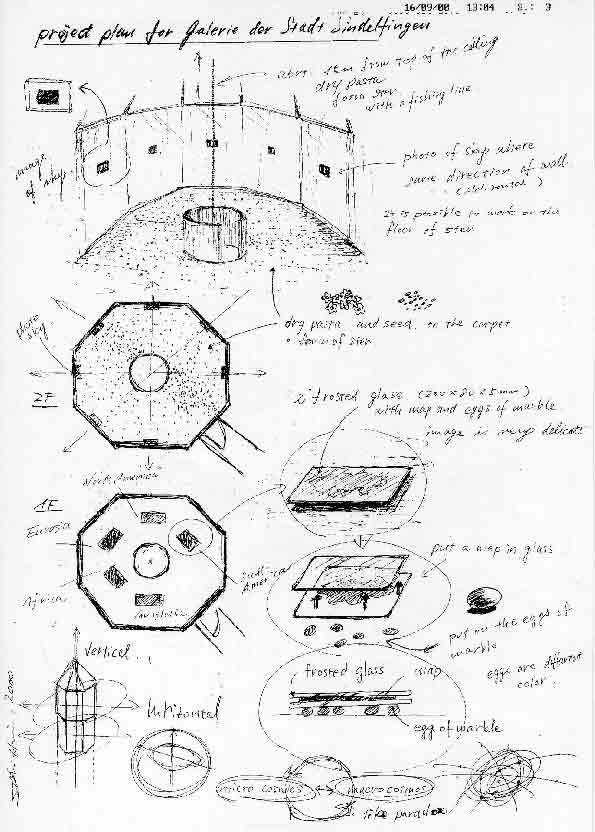 16/09/00 13:04 S.: 3
project plan for Galerie der Stadt Sindelfingen
from top of the ceiling
dry pasta
form star
with a fishing line
image
of sky
photo of sky where
same direction of wall
It is possible to work on the
floor of star
photo
sky
dry pasta and seed. to the carpet
form of star
2F
2 frosted glass
with map and eggs of marble
image is very delicate
North America
1F
Eurasia
Africa
South
America
put a map in glass
put on the eggs of
marble
eggs are different
color.
frosted glass map
egg of marble
Vertical
Horizontal
2000
micro cosmos ↔ macro cosmos
like paradox